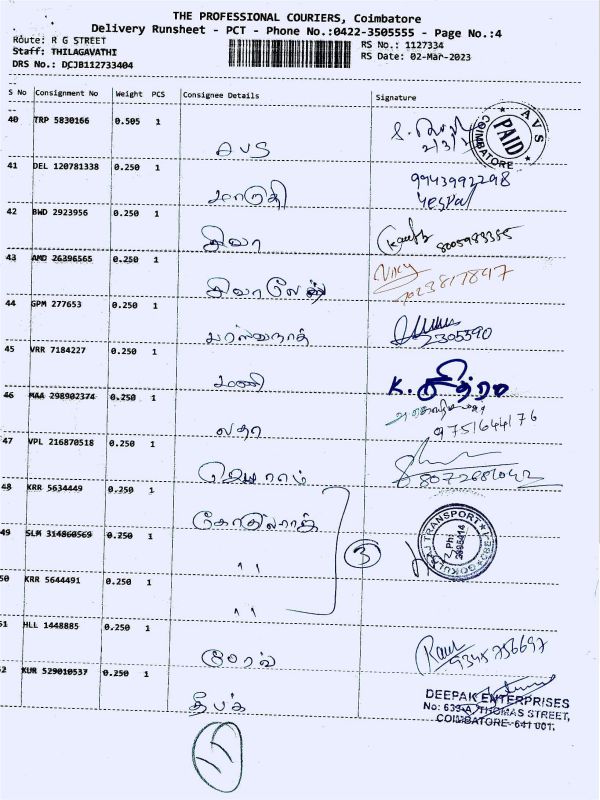 THE PROFESSIONAL COURIERS, Coimbatore
Delivery Runsheet - PCT - Phone No.:0422-3505555 - Page No.:4
Route: R G STREET
Staff: THILAGAVATHI
DRS No.: DCJB112733404
RS No.: 1127334
RS Date: 02-Mar-2023
S No Consignment No Weight PCS Consignee Details Signature
40 TRP 5830166 0.505 1
AVS
2/3/
AVS PAID COIMBATORE
41 DEL 120781338 0.250 1
மாருதி
9943992298
42 BWD 2923956 0.250 1
சிவா
8005983385
43 AMD 26396565 0.250 1
Vicky
7023817847
44 GPM 277653 0.250 1
2305590
45 VRR 7184227 0.250 1
மணி
K. சித்ரா
46 MAA 298902374 0.250 1
லதா
9751644176
47 VPL 216870518 0.250 1
ஜெயராம்
48 KRR 5634449 0.250 1
கோகுல்ராஜ்
3
GOKULRAJ TRANSPORT
49 SLM 314860569 0.250 1
"
50 KRR 5644491 0.250 1
"
51 HLL 1448885 0.250 1
9345756697
52 KUR 529010537 0.250 1
தீபக்
DEEPAK ENTERPRISES
No: 639-A, THOMAS STREET,
COIMBATORE- 641 001.